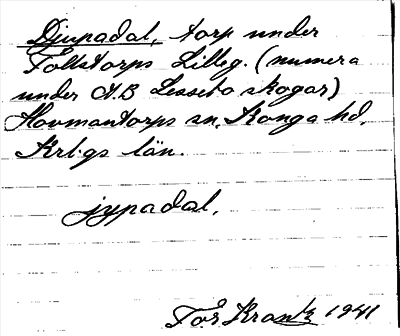 Djupadal, torp under
Folkstorps Lilleg. (numera
under A.B Lessebo skogar)
Hovmantorps sn, Konga hd,
Krb:gs län.
jypadal,
Tor Krantz 1941